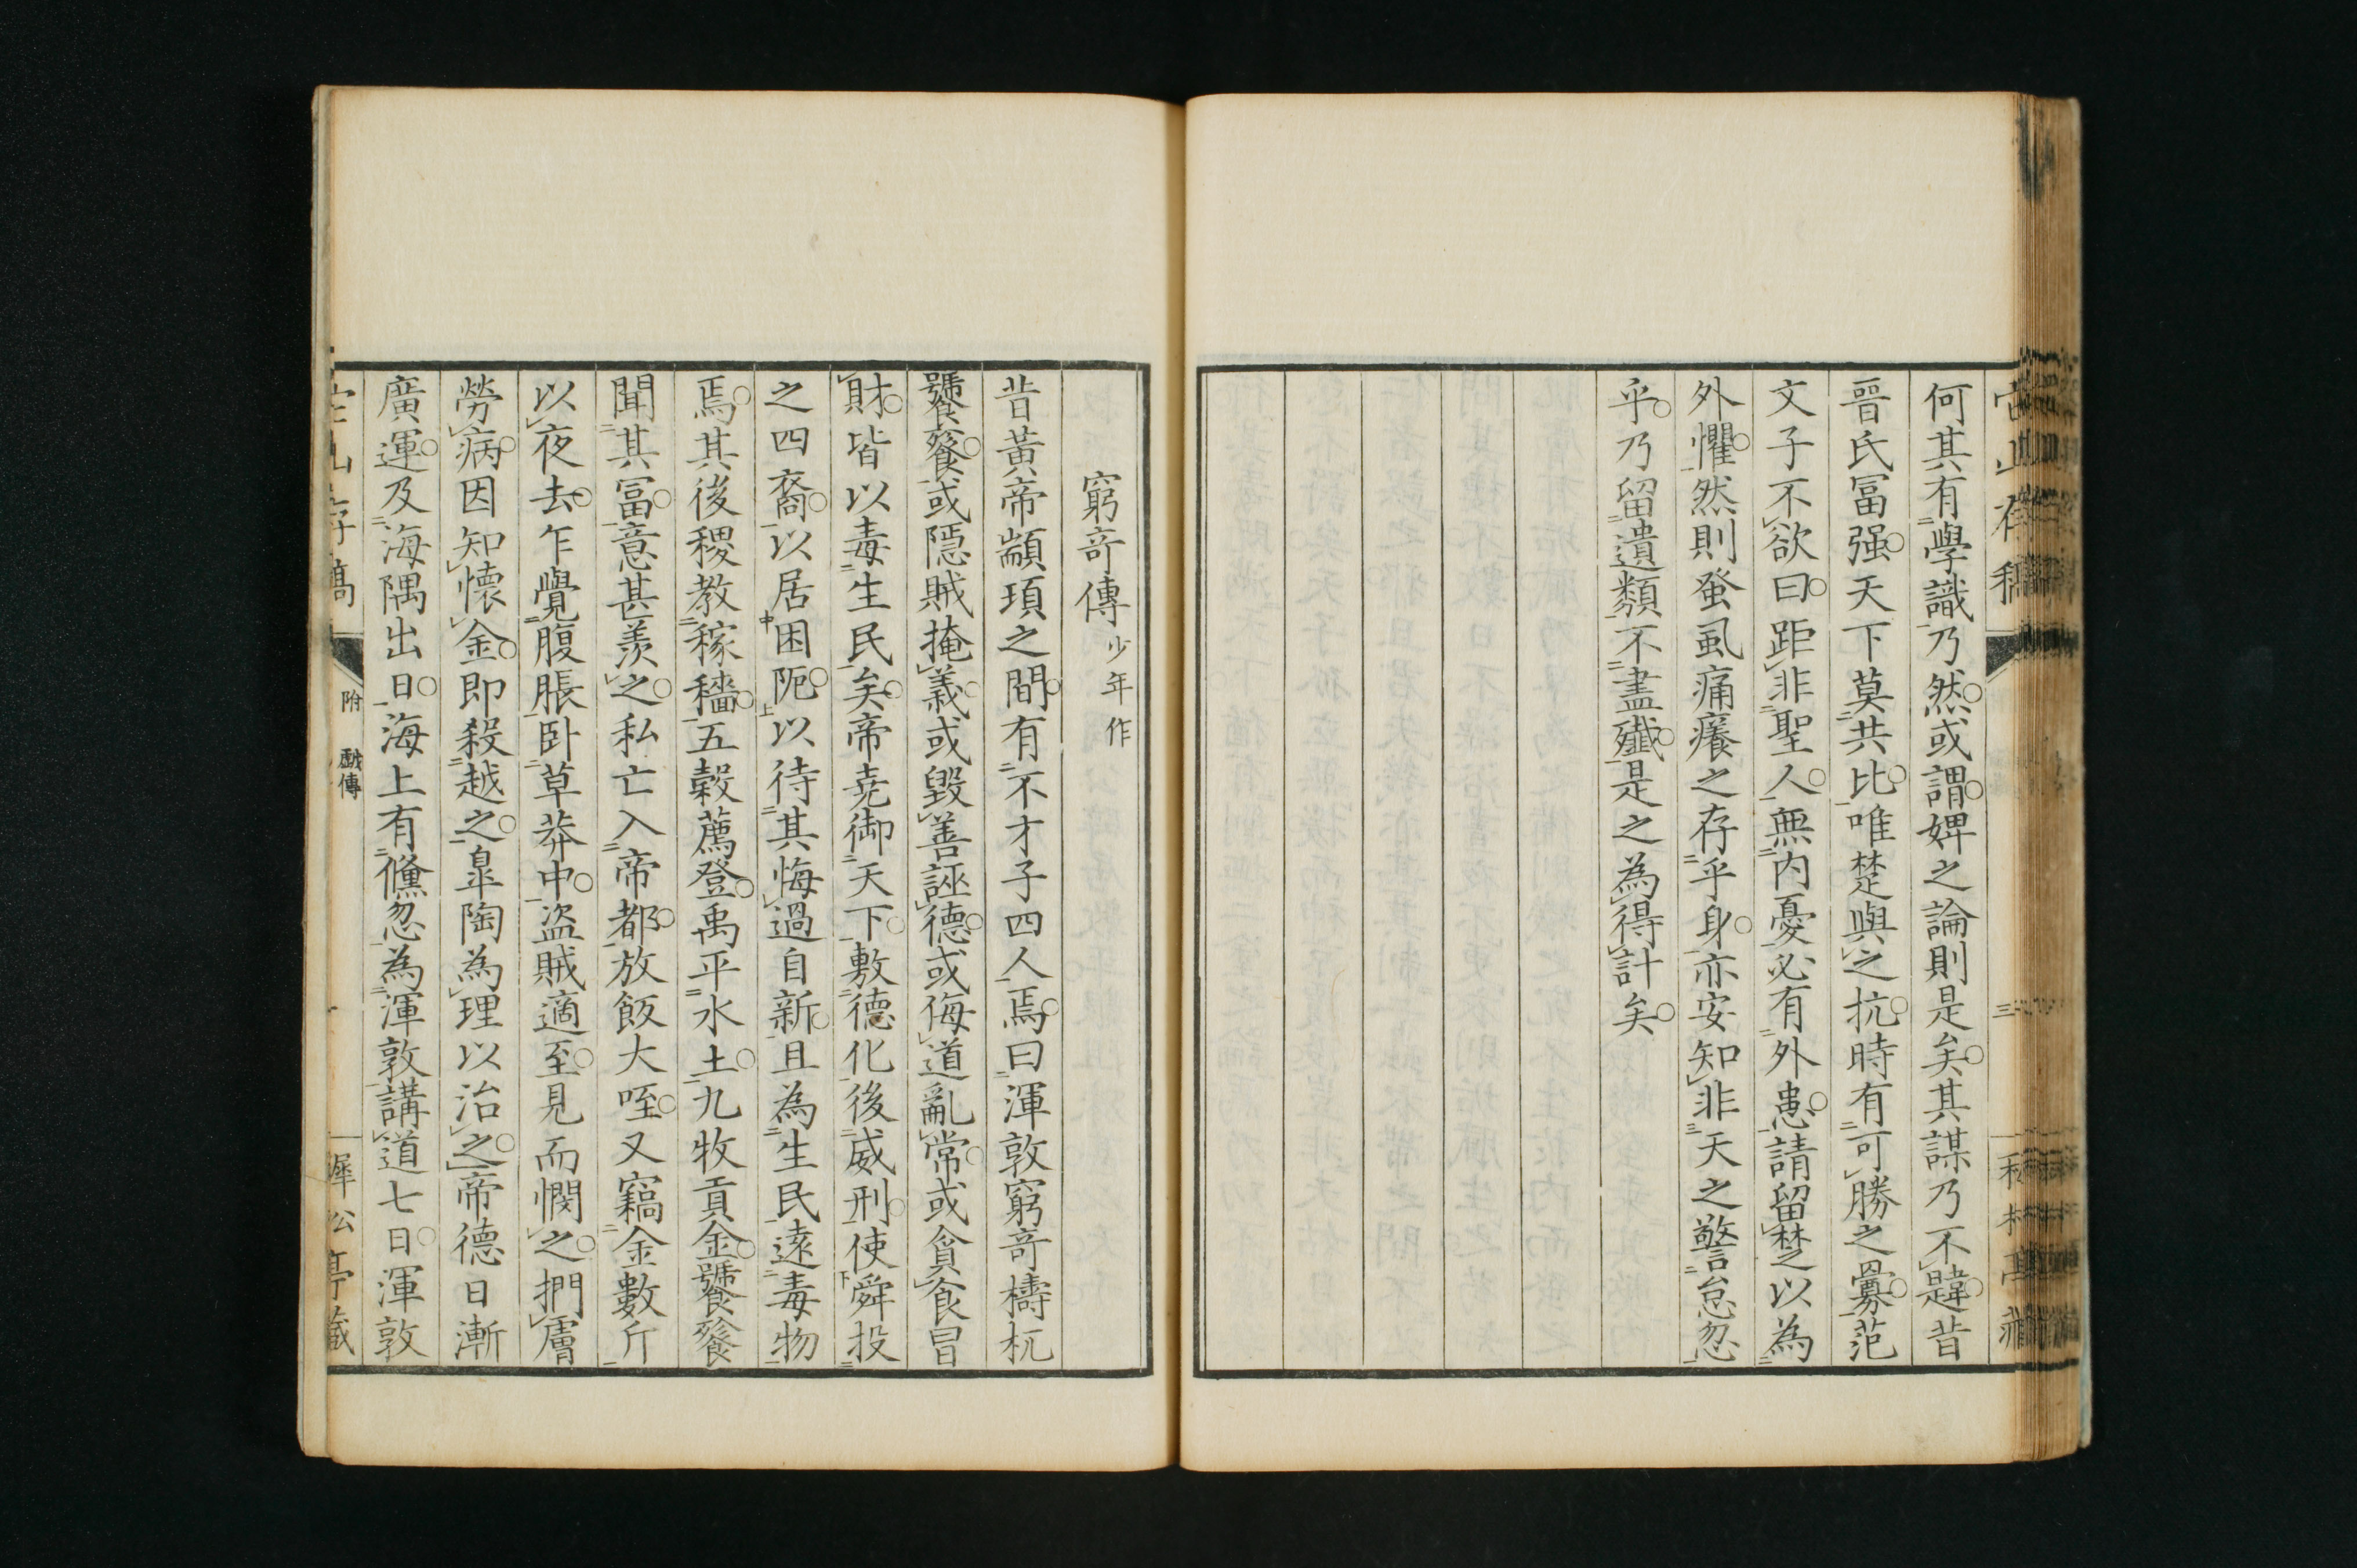 何其有學識乃然或謂婢之論則是矣其謀乃不韙昔
晉氏冨强天下莫共比唯楚與之抗時有可勝之釁范
文子不欲曰距非聖人無內憂必有外患請留楚以為
外懼然則蚤虱痛癢之存乎身亦安知非天之警怠忽
乎乃留遺類不盡殲是之為得計矣
窮竒傳少年作
昔黃帝顓頊之間有不才子四人焉曰渾敦窮竒檮杌
饕餮或隱賊掩義或毀善誣德或侮道亂常或貪飧冒
財皆以毒生民矣帝堯御天下敷德化後威刑使舜投
之四裔以居困阨以待其悔過自新且為生民遠毒物
焉其後稷教稼穡五穀薦登禹平水土九牧貢金饕餮
聞其冨意甚羨之私亡入帝都放飯大咥又竊金數斤
以夜去乍覺腹脹臥草莽中盜賊適至見而憫之捫膚
勞病因知懷金即殺越之皐陶為理以治之帝德日漸
廣運及海隅出日海上有儵忽為渾敦講道七日渾敦
附 戲傳